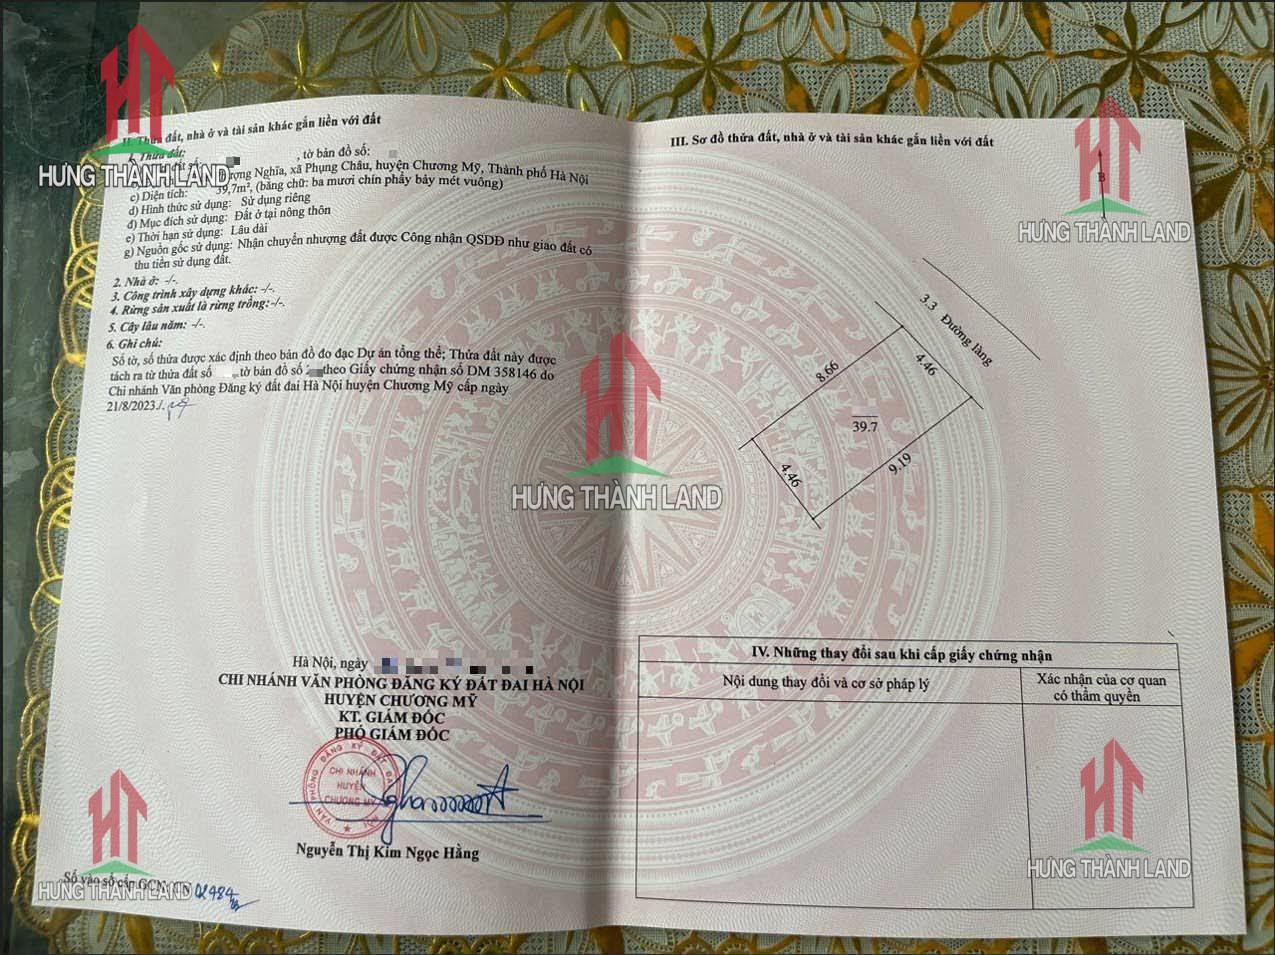 II. Thửa đất, nhà ở và tài sản khác gắn liền với đất
1. Thửa đất:
đất số: , tờ bản đồ số:
ượng Nghĩa, xã Phụng Châu, huyện Chương Mỹ, Thành phố Hà Nội
c) Diện tích: 39,7m², (bằng chữ: ba mươi chín phẩy bảy mét vuông)
d) Hình thức sử dụng: Sử dụng riêng
đ) Mục đích sử dụng: Đất ở tại nông thôn
e) Thời hạn sử dụng: Lâu dài
g) Nguồn gốc sử dụng: Nhận chuyển nhượng đất được Công nhận QSDĐ như giao đất có
thu tiền sử dụng đất.
2. Nhà ở: -/-.
3. Công trình xây dựng khác: -/-.
4. Rừng sản xuất là rừng trồng:-/-.
5. Cây lâu năm: -/-.
6. Ghi chú:
Số tờ, số thửa được xác định theo bản đồ đo đạc Dự án tổng thể; Thửa đất này được
tách ra từ thửa đất số , tờ bản đồ số theo Giấy chứng nhận số DM 358146 do
Chi nhánh Văn phòng Đăng ký đất đai Hà Nội huyện Chương Mỹ cấp ngày
21/8/2023./.
Hà Nội, ngày
CHI NHÁNH VĂN PHÒNG ĐĂNG KÝ ĐẤT ĐAI HÀ NỘI
HUYỆN CHƯƠNG MỸ
KT. GIÁM ĐỐC
PHÓ GIÁM ĐỐC
VĂN PHÒNG ĐĂNG KÝ ĐẤT ĐAI
CHI NHÁNH
HUYỆN
CHƯƠNG MỸ
Nguyễn Thị Kim Ngọc Hằng
Số vào sổ cấp GCN: 02484
III. Sơ đồ thửa đất, nhà ở và tài sản khác gắn liền với đất
B
3.3 Đường làng
8.66
4.46
39.7
4.46
9.19
IV. Những thay đổi sau khi cấp giấy chứng nhận
Nội dung thay đổi và cơ sở pháp lý
Xác nhận của cơ quan
có thẩm quyền
HƯNG THÀNH LAND
HƯNG THÀNH LAND
HƯNG THÀNH LAND
HƯNG THÀNH LAND
HƯNG THÀNH LAND